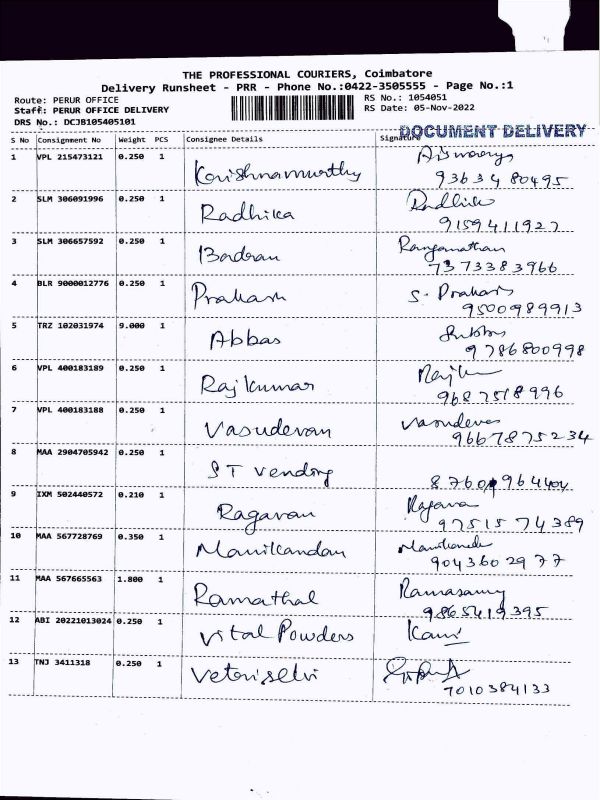 THE PROFESSIONAL COURIERS, Coimbatore
Delivery Runsheet - PRR - Phone No.:0422-3505555 - Page No.:1
Route: PERUR OFFICE RS No.: 1054051
Staff: PERUR OFFICE DELIVERY RS Date: 05-Nov-2022
DRS No.: DCJB105405101
DOCUMENT DELIVERY
S No Consignment No Weight PCS Consignee Details Signature
1 VPL 215473121 0.250 1 Krishnamurthy
93634 80495
2 SLM 306091996 0.250 1 Radhika Radhika
9159411927
3 SLM 306657592 0.250 1 Ranganathan
7373383966
4 BLR 9000012776 0.250 1 Prakash S. Prakash
9500989913
5 TRZ 102031974 9.000 1 Abbas
9786800998
6 VPL 400183189 0.250 1 Rajkumar
9687518996
7 VPL 400183188 0.250 1 Vasudevan Vasudevan
9667875234
8 MAA 2904705942 0.250 1 ST Vending
9 IXM 502440572 0.210 1 Ragavan Ragavan
97515 74389
10 MAA 567728769 0.350 1 Manikandan Manikandan
9043602977
11 MAA 567665563 1.800 1 Ramathal Ramasamy
9865419395
12 ABI 20221013024 0.250 1 Vital Powders
13 TNJ 3411318 0.250 1 Vetriselvi
7010384133